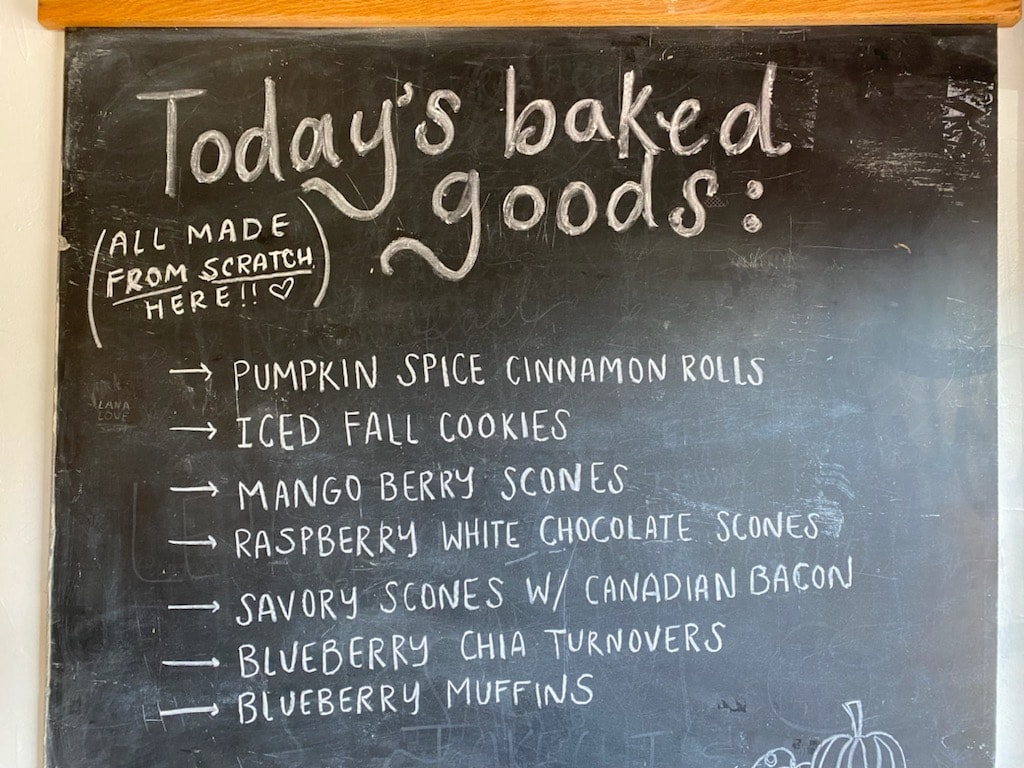 Today's baked
goods:
(ALL MADE
FROM SCRATCH
HERE!! ♡)
→ PUMPKIN SPICE CINNAMON ROLLS
→ ICED FALL COOKIES
→ MANGO BERRY SCONES
→ RASPBERRY WHITE CHOCOLATE SCONES
→ SAVORY SCONES W/ CANADIAN BACON
→ BLUEBERRY CHIA TURNOVERS
→ BLUEBERRY MUFFINS
LANA
LOVE